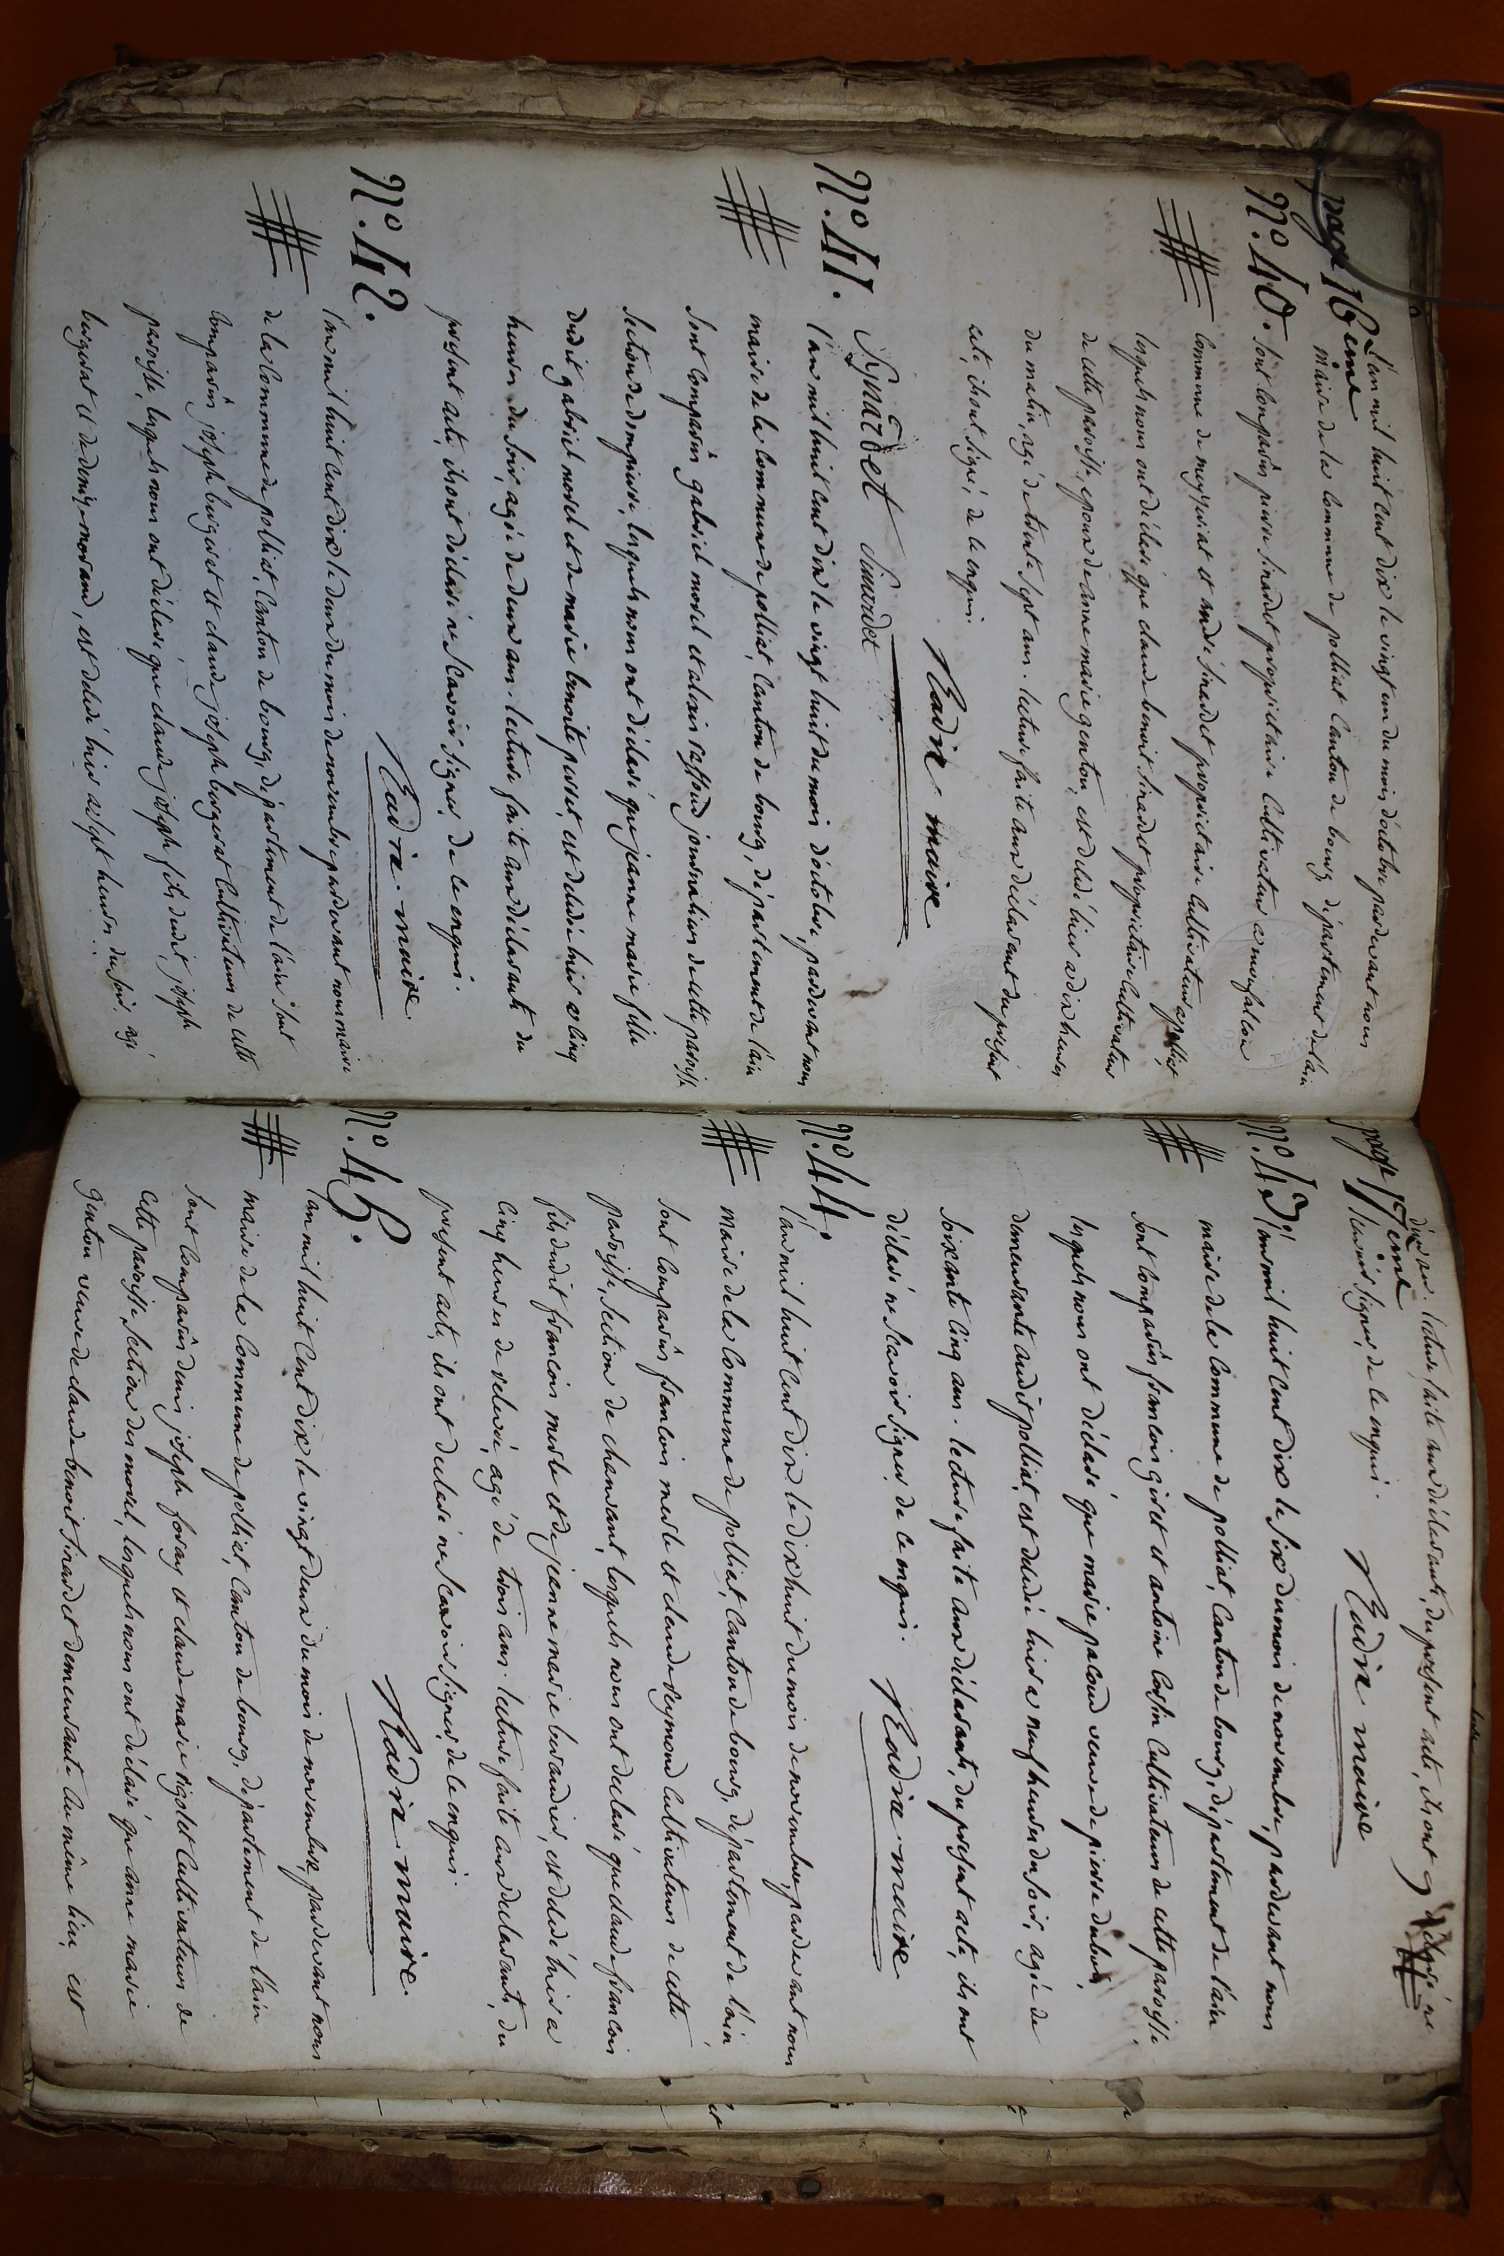 page 16eme
L'an mil huit cent dix le vingt un du mois d'octobre pardevant nous
maire de la commune de polliat canton de bourg département de l'ain
N.o 40. sont comparus pierre sirardet propriétaire cultivateur a
commune de et andré sirardet propriétaire cultivateur a polliat
lesquels nous ont déclaré que claude benoit sirardet propriétaire cultivateur
de cette paroisse, epoux de anne marie genton, est décédé hier a dix heures
du matin, agé de trente sept ans. lecture faite aux déclarant du présent
acte, ils ont signé, de ce enquis.
maire
Synardet Sirardet
N.o 41. l'an mil huit cent dix le vingt huit du mois d'octobre, pardevant nous
maire de la commune de polliat, canton de bourg, département de l'ain
sont comparus gabriel morel et alexis journalier de cette paroisse
section de lesquels nous ont déclaré que jeanne marie fille
dudit gabriel morel et de marie benoite est décédée hier a cinq
heures du soir, agée de deux ans. lecture faite aux déclarants du
présent acte, ils ont déclaré ne scavoir signer, de ce enquis.
maire
N.o 42. l'an mil huit cent dix le deux du mois de novembre pardevant nous maire
de la commune de polliat, canton de bourg, département de l'ain sont
comparus joseph et claude joseph cultivateurs de cette
paroisse, lesquels nous ont déclaré que claude joseph fils dudit joseph
et de denise morand, est décédé hier a sept heures du soir, agé
page 17eme
d'un an. lecture faite aux déclarants, du présent acte, ils ont déclaré ne
scavoir signer, de ce enquis.
maire
N.o 43. l'an mil huit cent dix le six du mois de novembre, pardevant nous
maire de la commune de polliat, canton de bourg, département de l'ain
sont comparus francois et antoine cultivateurs de cette paroisse,
lesquels nous ont déclaré que marie pacoud veuve de pierre dubois,
demeurante audit polliat est décédée hier a neuf heures du soir, agée de
soixante cinq ans. lecture faite aux déclarants, du présent acte, ils ont
déclaré ne scavoir signer de ce enquis.
maire
N.o 44. l'an mil huit cent dix le dix huit du mois de novembre, pardevant nous
maire de la commune de polliat, canton de bourg, département de l'ain
sont comparus francois merle et claude reymond cultivateurs de cette
paroisse, section de lesquels nous ont déclaré que claude francois
fils dudit francois merle et de jeanne marie est décédé hier a
cinq heures de relevée, agé de trois ans. lecture faite aux déclarants, du
présent acte, ils ont déclaré ne scavoir signer, de ce enquis.
maire
N.o 45. l'an mil huit cent dix le vingt deux du mois de novembre, pardevant nous
maire de la commune de polliat, canton de bourg, département de l'ain
sont comparus denis joseph foray et claude marie rigolet cultivateurs de
cette paroisse section des morel, lesquels nous ont déclaré que anne marie
genton veuve de claude benoit sirardet demeurante au même lieu, est